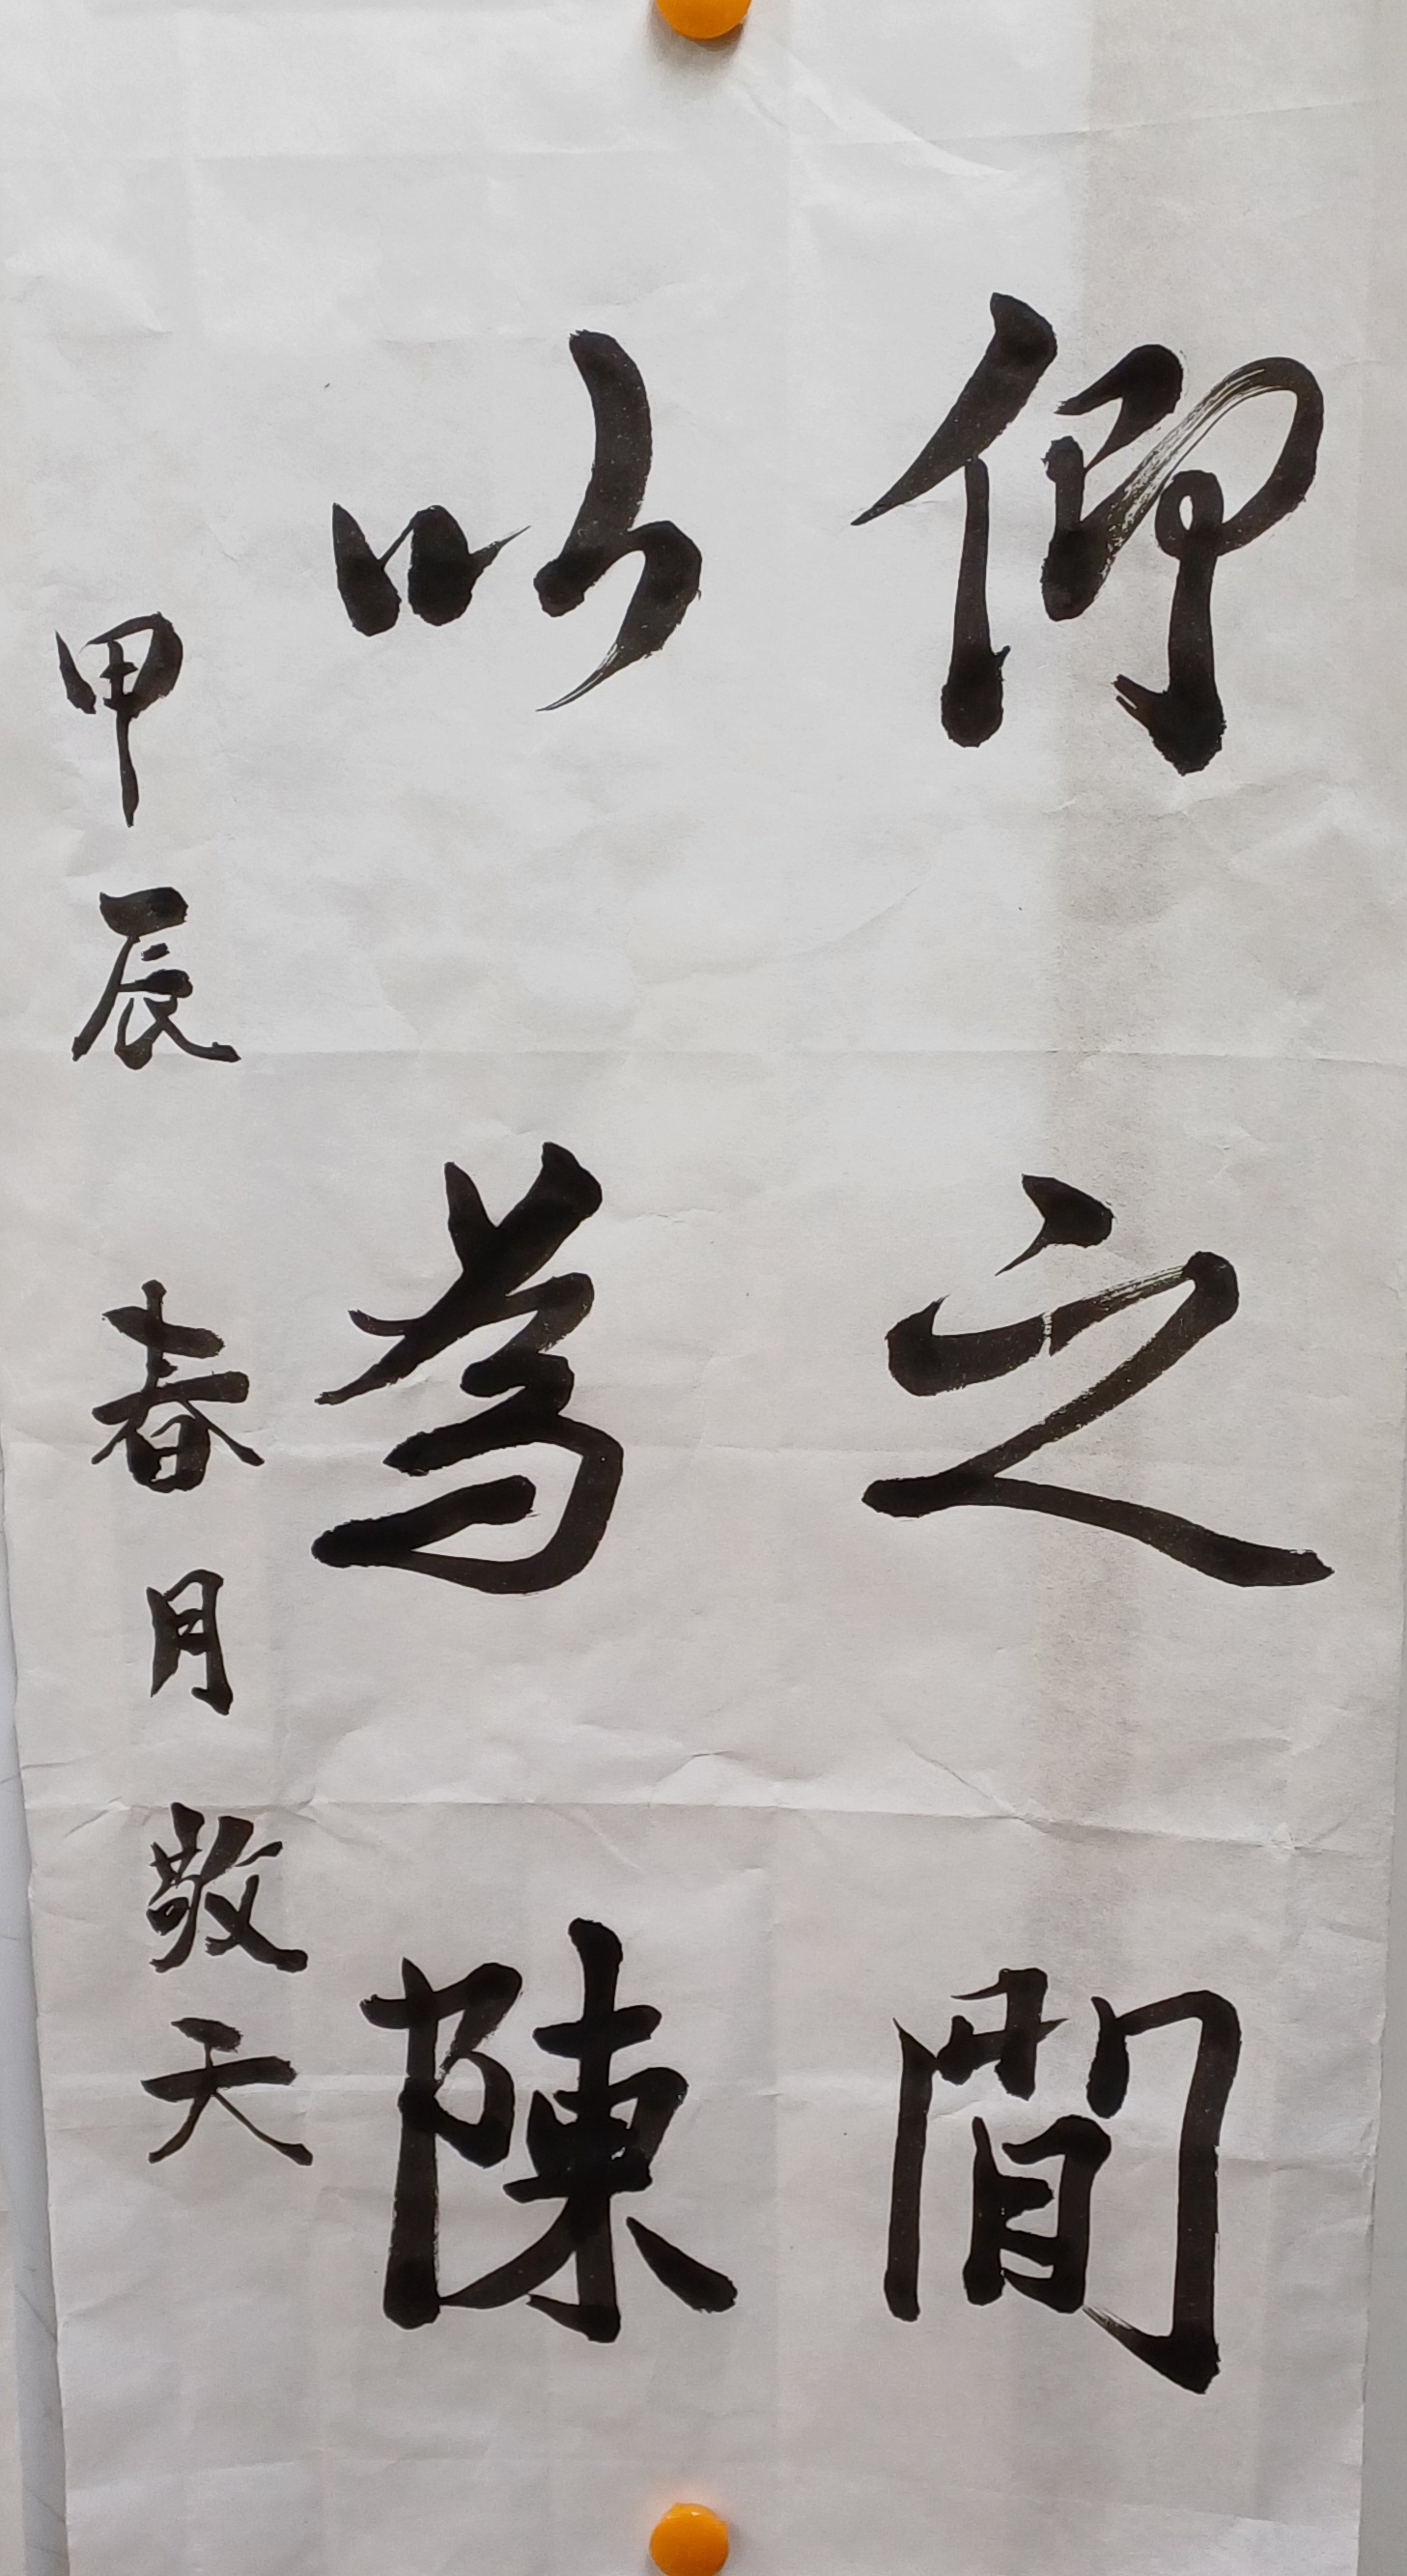 仰之間
以為陳
甲辰春月敬天